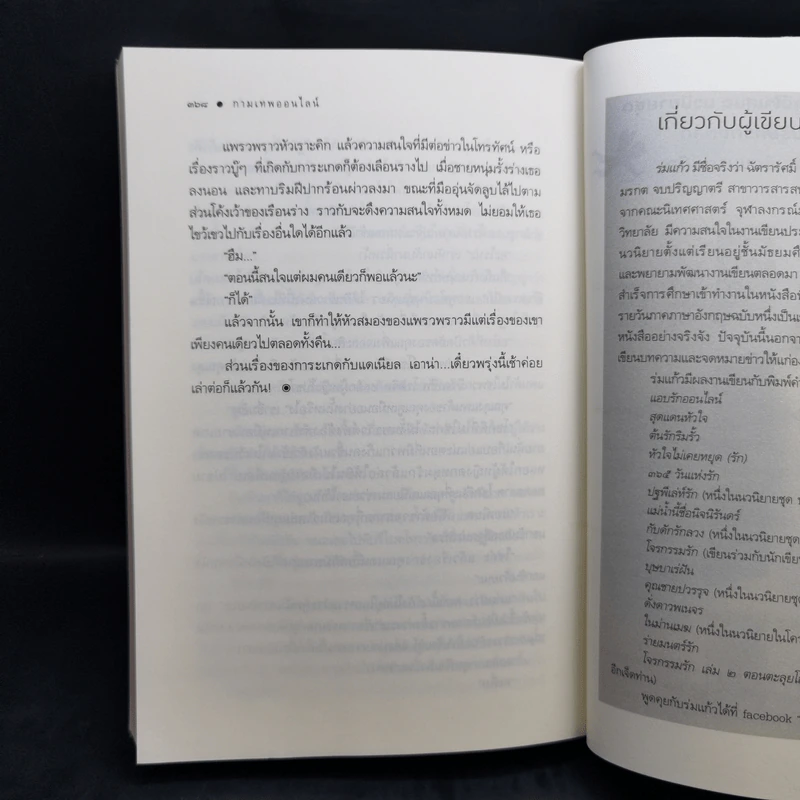 ๓๖๘ ● กามเทพออนไลน์
แพรวพราวหัวเราะคิก แล้วความสนใจที่มีต่อข่าวในโทรทัศน์ หรือ
เรื่องราวบู๊ๆ ที่เกิดกับการะเกดก็ต้องเลือนรางไป เมื่อชายหนุ่มรั้งร่างเธอ
ลงนอน และทาบริมฝีปากร้อนผ่าวลงมา ขณะที่มืออุ่นจัดลูบไล้ไปตาม
ส่วนโค้งเว้าของเรือนร่าง ราวกับจะดึงความสนใจทั้งหมด ไม่ยอมให้เธอ
ไขว้เขวไปกับเรื่องอื่นใดได้อีกแล้ว
“ฮืม...”
“ตอนนี้สนใจแต่ผมคนเดียวก็พอแล้วนะ”
“ก็ได้”
แล้วจากนั้น เขาก็ทำให้หัวสมองของแพรวพราวมีแต่เรื่องของเขา
เพียงคนเดียวไปตลอดทั้งคืน...
ส่วนเรื่องของการะเกดกับแดเนียล เอาน่า...เดี๋ยวพรุ่งนี้เช้าค่อย
เล่าต่อก็แล้วกัน! ◉
เกี่ยวกับผู้เขียน
ร่มแก้ว มีชื่อจริงว่า ฉัตรารัศมิ์
มรกต จบปริญญาตรี สาขาวารสารสน
จากคณะนิเทศศาสตร์ จุฬาลงกรณ์ม
วิทยาลัย มีความสนใจในงานเขียนประ
นวนิยายตั้งแต่เรียนอยู่ชั้นมัธยมศึ
และพยายามพัฒนางานเขียนตลอดมา
สำเร็จการศึกษาเข้าทำงานในหนังสือพิ
รายวันภาคภาษาอังกฤษฉบับหนึ่งเป็นเ
หนังสืออย่างจริงจัง ปัจจุบันนี้นอกจา
เขียนบทความและจดหมายข่าวให้แก่อง
ร่มแก้วมีผลงานเขียนกับพิมพ์คำ
แอบรักออนไลน์
สุดแดนหัวใจ
ต้นรักริมรั้ว
หัวใจไม่เคยหยุด (รัก)
๓๖๕ วันแห่งรัก
ปฐพีเล่ห์รัก (หนึ่งในนวนิยายชุด
แม่น้ำนี้ชื่อนิจนิรันดร์
กับดักรักลวง (หนึ่งในนวนิยายชุด
โจรกรรมรัก (เขียนร่วมกับนักเขีย
บุษบาเร่ฝัน
คุณชายปวรรุจ (หนึ่งในนวนิยายชุด
ดั่งดาวพเนจร
ในม่านเมฆ (หนึ่งในนวนิยายในโคร
ร่ายมนตร์รัก
โจรกรรมรัก เล่ม ๒ ตอนตะลุยโ
อีกเจ็ดท่าน)
พูดคุยกับร่มแก้วได้ที่ facebook